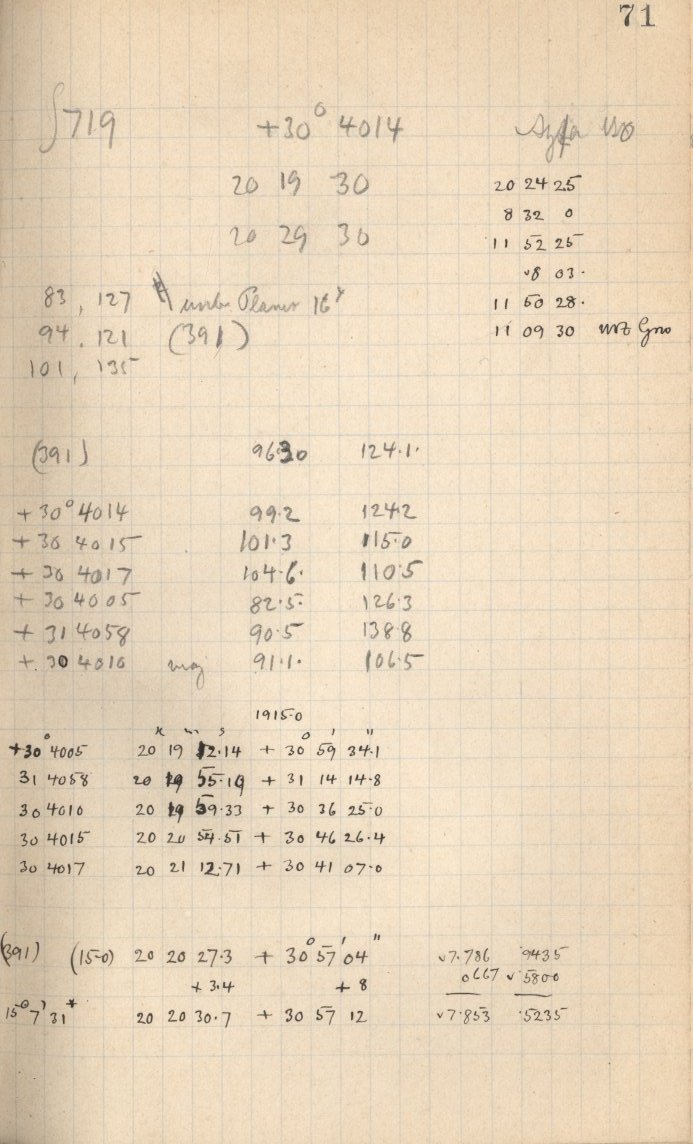 71
∫719 +30° 4014
20 19 30
20 29 30
20 24 25
8 32 0
11 52 25
8 03.
11 50 28.
11 09 30
83, 127 16
94, 121 (391)
101, 135
(391) 9630 124.1.
+30° 4014 99.2 124.2
+30 4015 101.3 115.0
+30 4017 104.6. 110.5
+30 4005 82.5. 126.3
+31 4058 90.5 138.8
+30 4010 91.1. 106.5
1915.0
h m s ° ' "
+30° 4005 20 19 12.14 + 30 59 34.1
31 4058 20 19 55.19 + 31 14 14.8
30 4010 20 19 59.33 + 30 36 25.0
30 4015 20 20 54.51 + 30 46 26.4
30 4017 20 21 12.71 + 30 41 07.0
(391) (15.0) 20 20 27.3 + 30° 57' 04" v7.786 .9435
+ 3.4 + 8 0667 v.5800
15° 7' 31* 20 20 30.7 + 30 57 12 v7.853 .5235